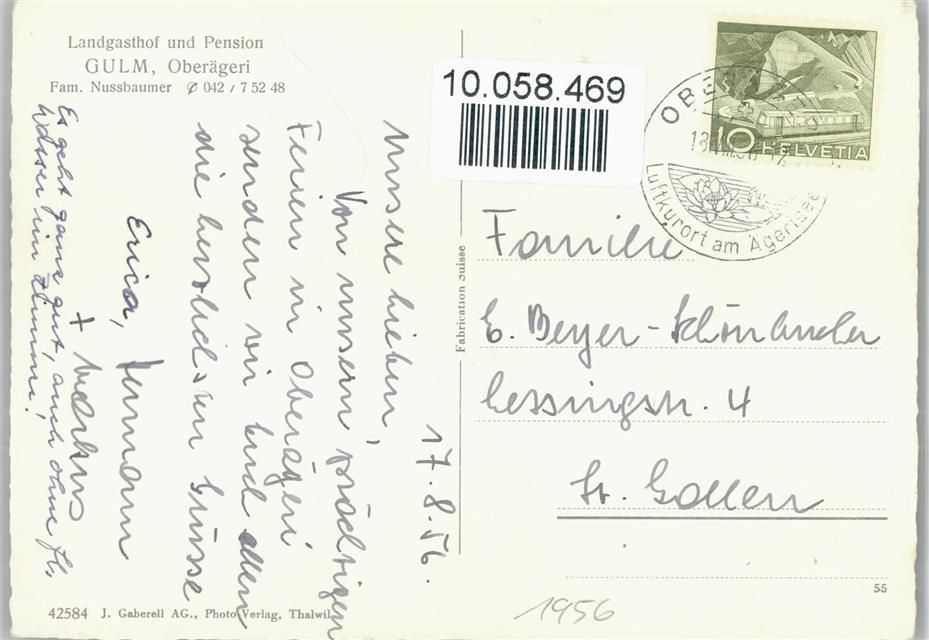 Landgasthof und Pension
GULM, Oberägeri
Fam. Nussbaumer ✆ 042 / 7 52 48
17.8.56.
Unsere lieben,
Von unsern prächtigen
Ferien in Oberägeri
senden wir Euch allen
die herzlichsten Grüsse
Erica, Hermann
+ Markus
Es geht ganz gut, auch ohne fl.
Wasser im Zimmer!
Fabrication Suisse
10.058.469
10 HELVETIA
OBERÄGERI
Luftkurort am Ägerisee
Familie
E. Beyer-Schönbucher
Lessingstr. 4
St. Gallen
55
42584 J. Gaberell AG., Photo-Verlag, Thalwil
1956